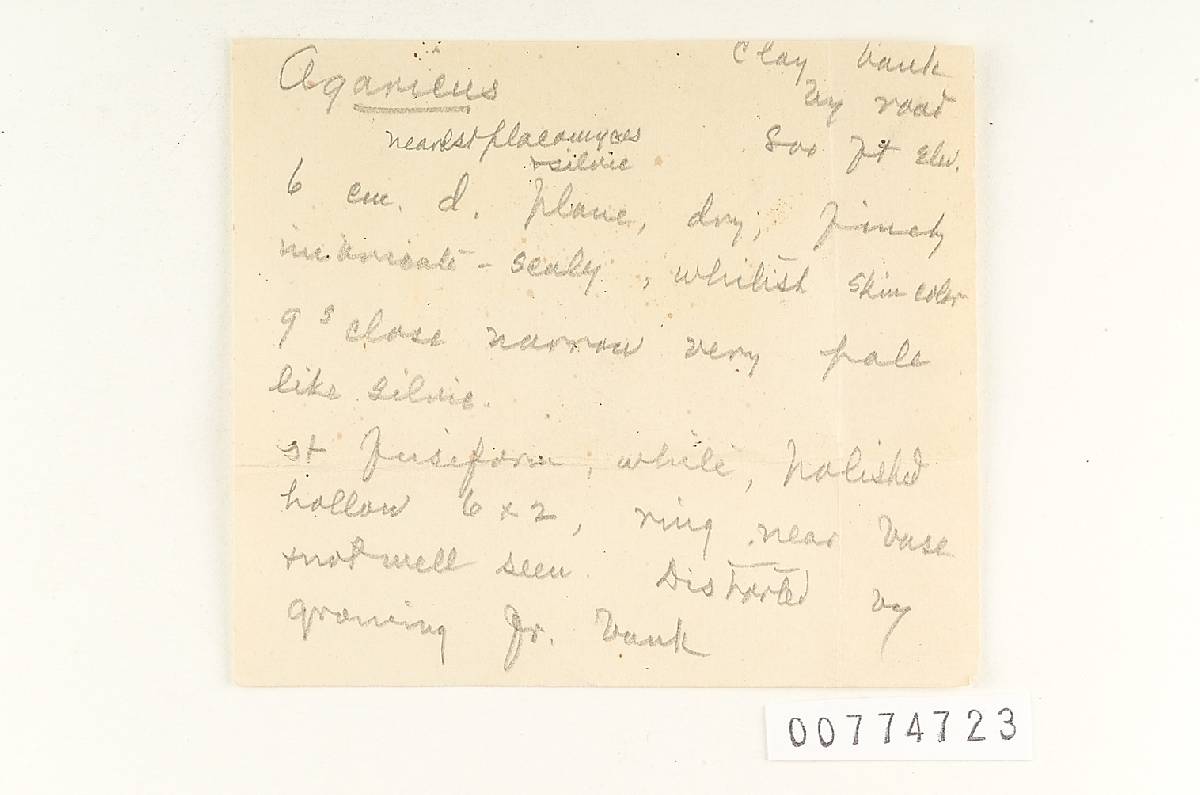 Agaricus
Clay bank
by road
800 ft elev.
nearest placomyces
+ silvic
6 cm. d. plane, dry, finely
imbricate - scaly, whitish skin color
g s close narrow very pale
like silvic.
st fusiform, white, polished
hollow 6 x 2, ring near base
+ not well seen. Distorted by
growing fr. bank
00774723